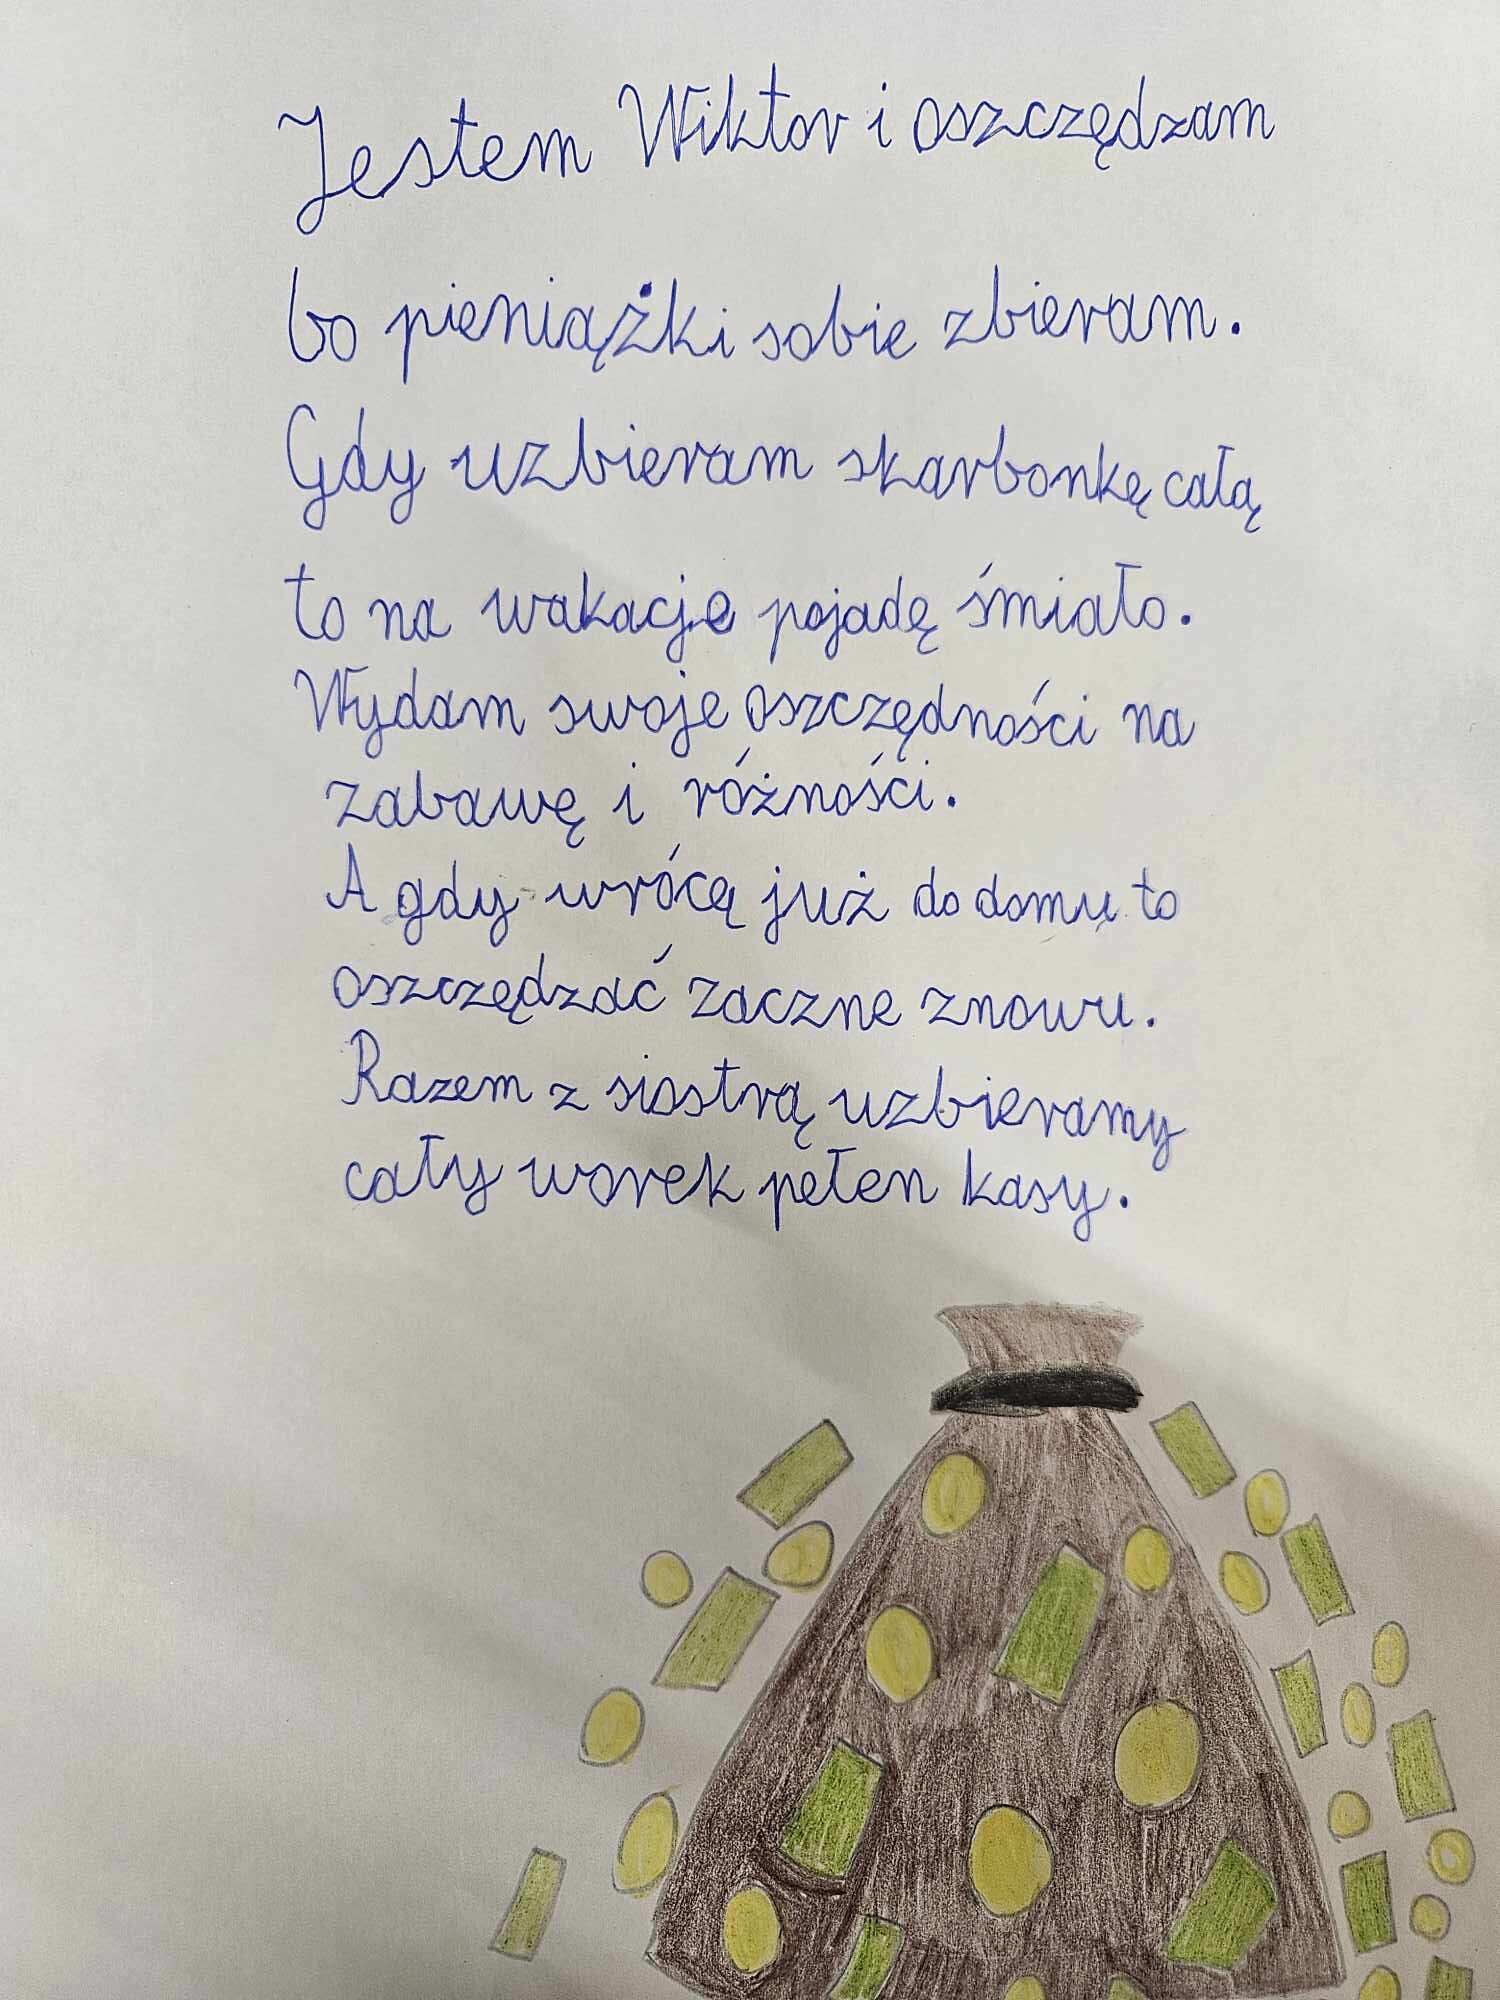 Jestem Wiktor i oszczędzam
bo pieniążki sobie zbieram.
Gdy uzbieram skarbonkę całą
to na wakacje pojadę śmiało.
Wydam swoje oszczędności na
zabawę i różności.
A gdy wrócę już do domu to
oszczędzać zaczne znowu.
Razem z siostrą uzbieramy
cały worek pełen kasy.